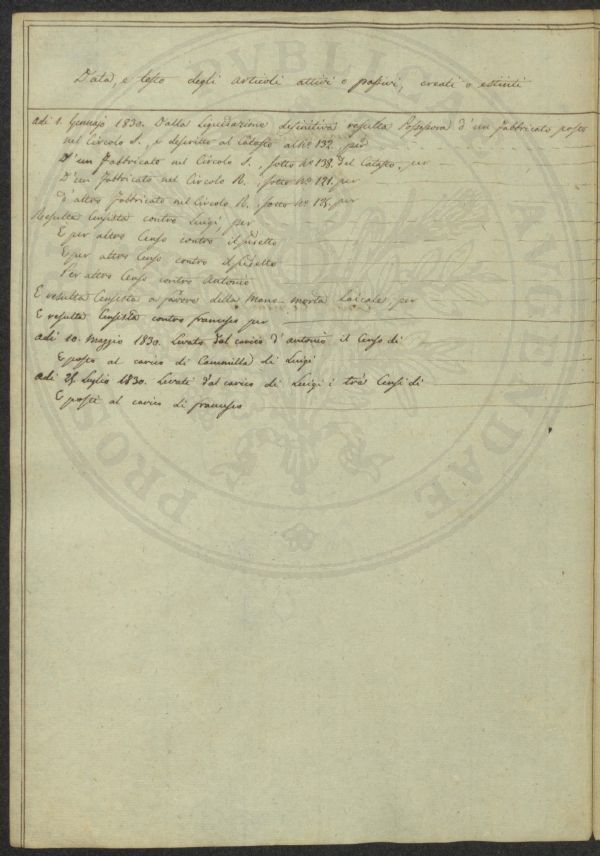 Data, e testo degli articoli attivi o passivi, creati o estinti
adi 1. Gennajo 1830. Dalla Liquidazione definitiva resulta Possessora d'un Fabbricato posto
nel Circolo S., e descritto al Catasto al n.° 132. per
D'un Fabbricato nel Circolo S., sotto N.° 138. del Catasto, per
D'un Fabbricato nel Circolo R., sotto N.° 121. per
d'altro Fabbricato nel Circolo R., sotto N.° 125. per
Resulta Censista contro Luigi, per
E per altro Censo contro il sudetto
E per altro Censo contro il sudetto
Per altro Censo contro Antonio
E resulta Censista a favore della Mano-morta laicale per
E resulta Censista contro Francesco per
adi 10. Maggio 1830. Levato dal carico d'Antonio il Censo di
E posto al carico di Cammilla di Luigi
adi 25 Luglio 1830. Levati dal carico di Luigi i trè Censi di
E posti al carico di Francesco
PVBLICAE